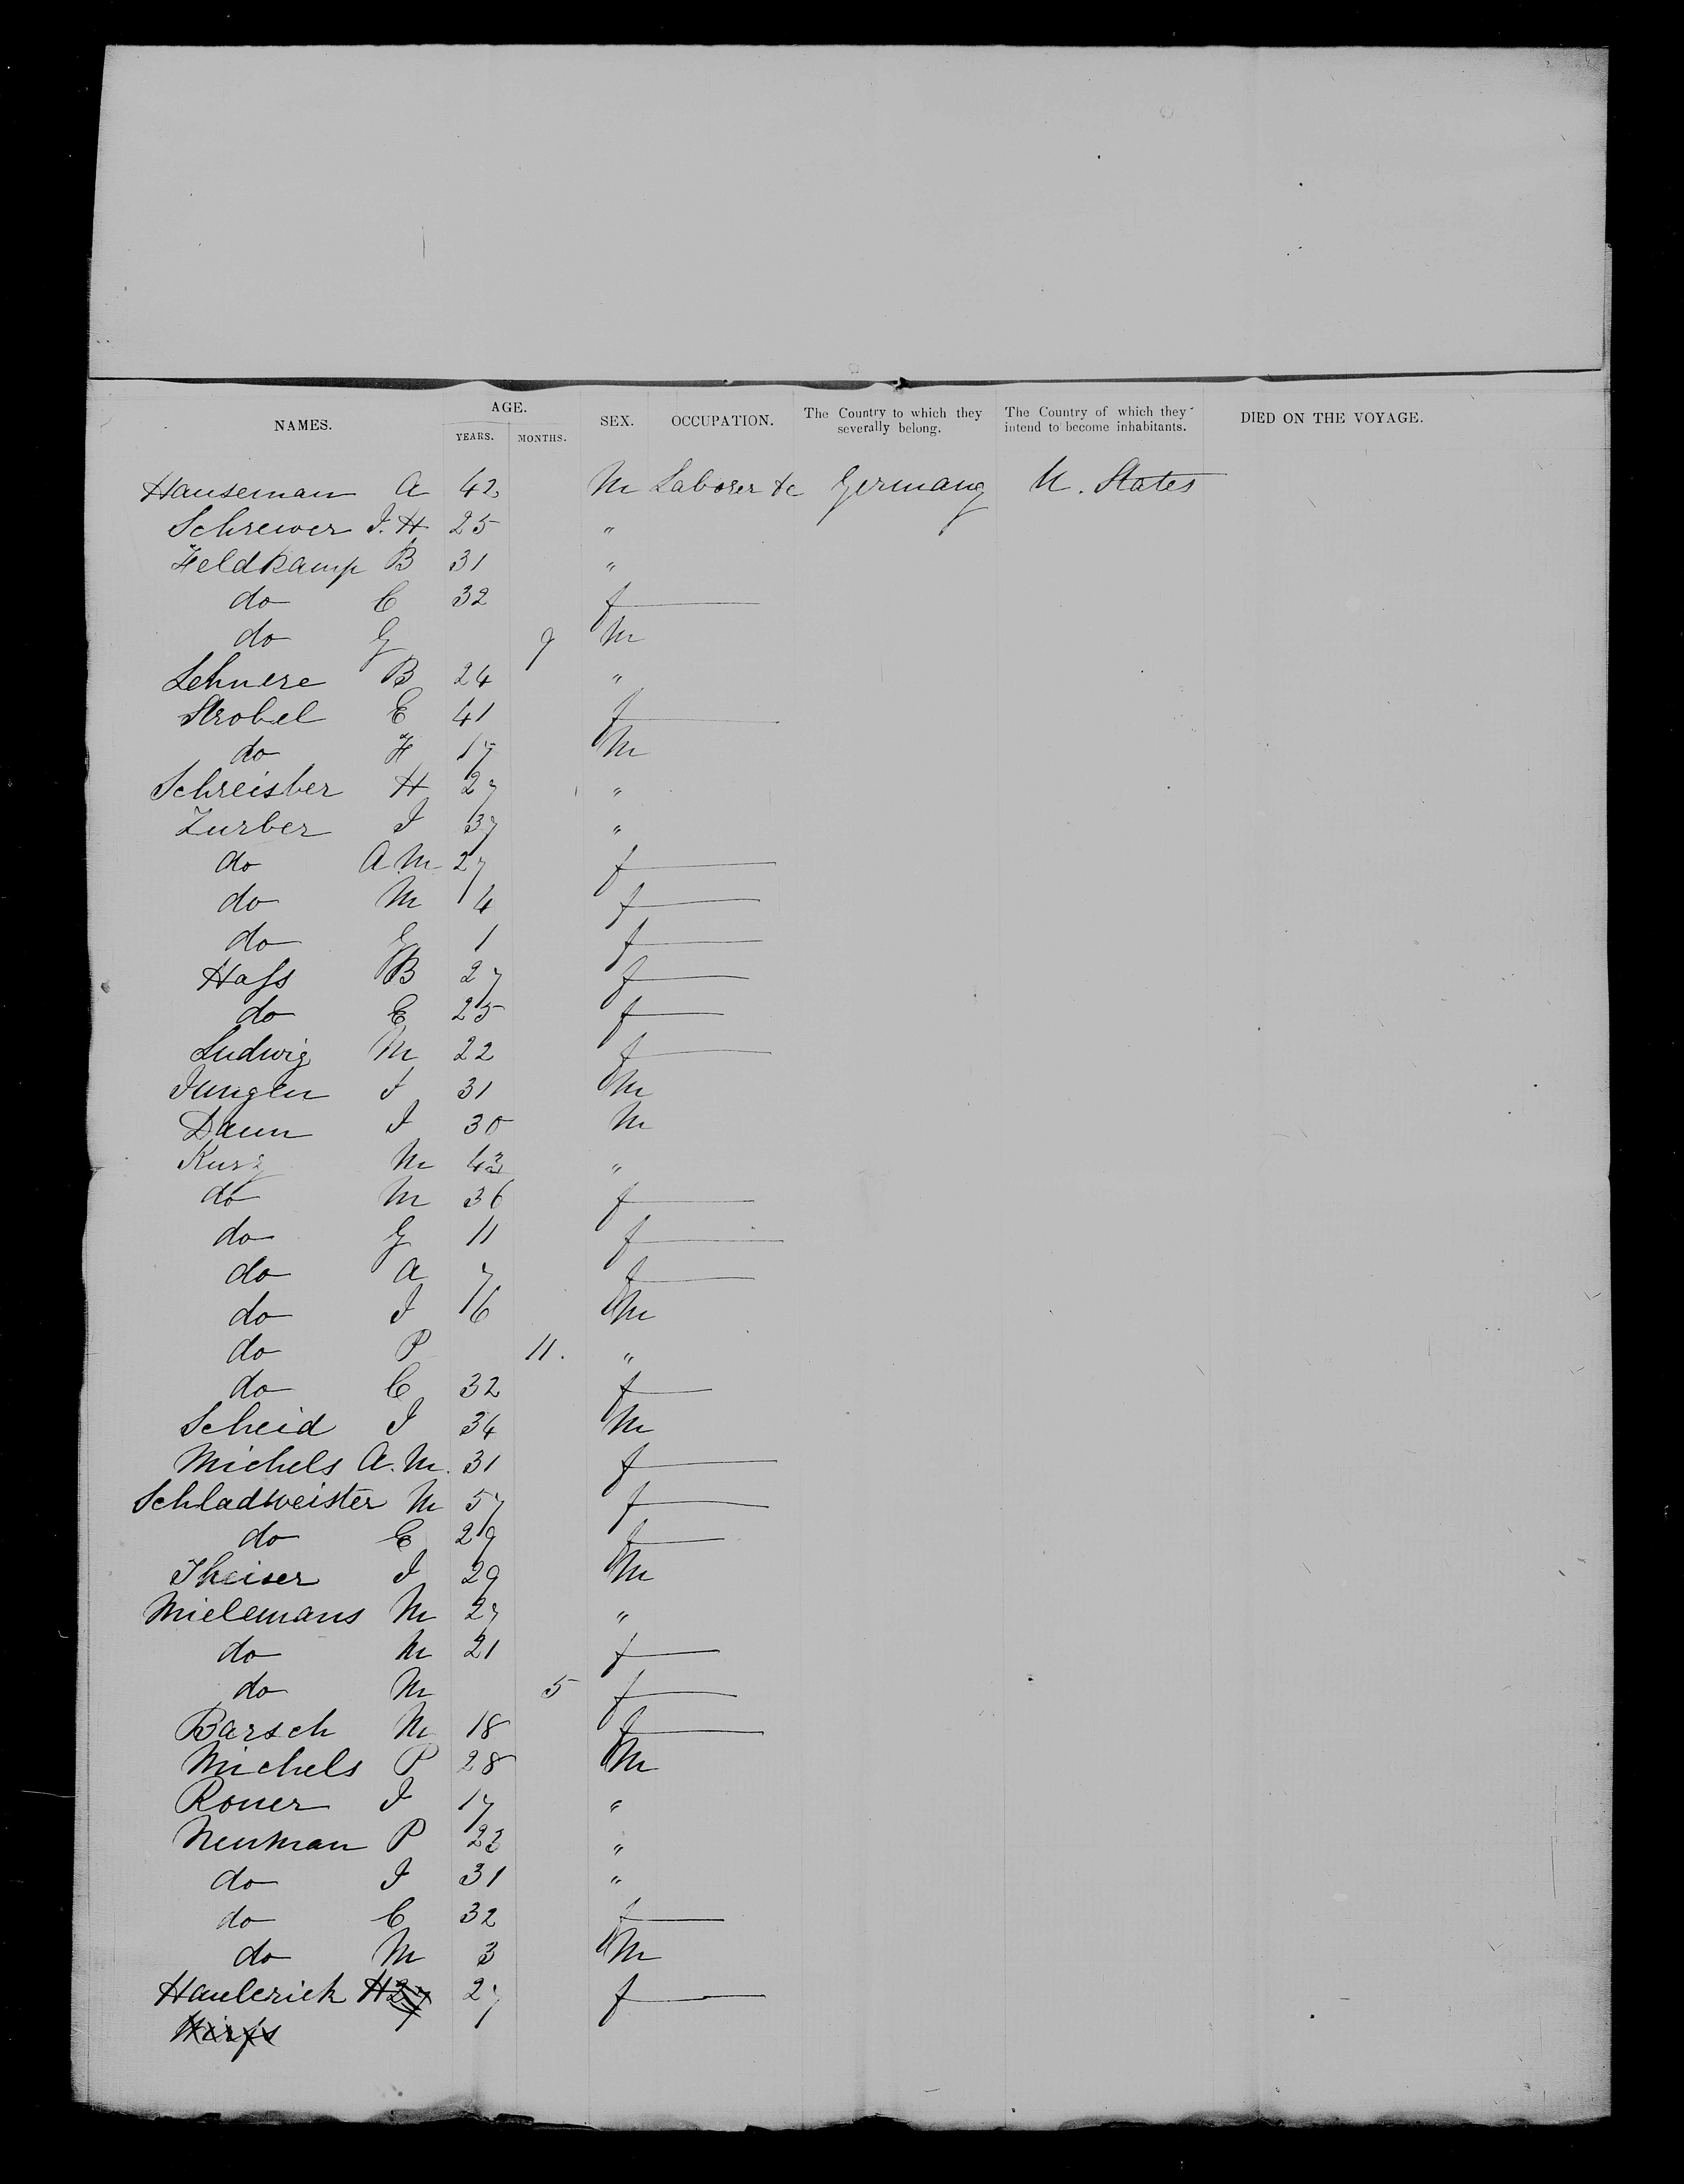 NAMES. AGE. SEX. OCCUPATION. The Country to which they severally belong. The Country of which they intend to become inhabitants. DIED ON THE VOYAGE.
YEARS. MONTHS.
Hauseman A 42 M Laborer &c Germany U. States
Schrewer J. H 25 "
Heldkamp B 31 "
do C 32 f
do G 9 M
Lehnere B 24 "
Strobel E 41 f
do H 17 M
Schreisber H 27 "
Zurber J 37 "
do A M 27 f
do M 4 f
do G 1 f
Hass B 27 f
do E 25 f
Ludwig M 22 f
Junglen J 31 M
Daun J 30 M
Kurz M 42 "
do M 36 f
do G 11 f
do A 7 f
do J 6 M
do P 11. "
do C 32 f
Scheid J 34 M
Michels A. M. 31 f
Schladweister M 57 f
do E 29 f
Theiser J 29 M
Mielemans M 27 "
do M 21 f
do M 5 f
Barsch M 18 f
Michels P 28 M
Roner J 17 "
Neuman P 22 "
do J 31 "
do C 32 f
do M 3 M
Haulerick H 27 27 f